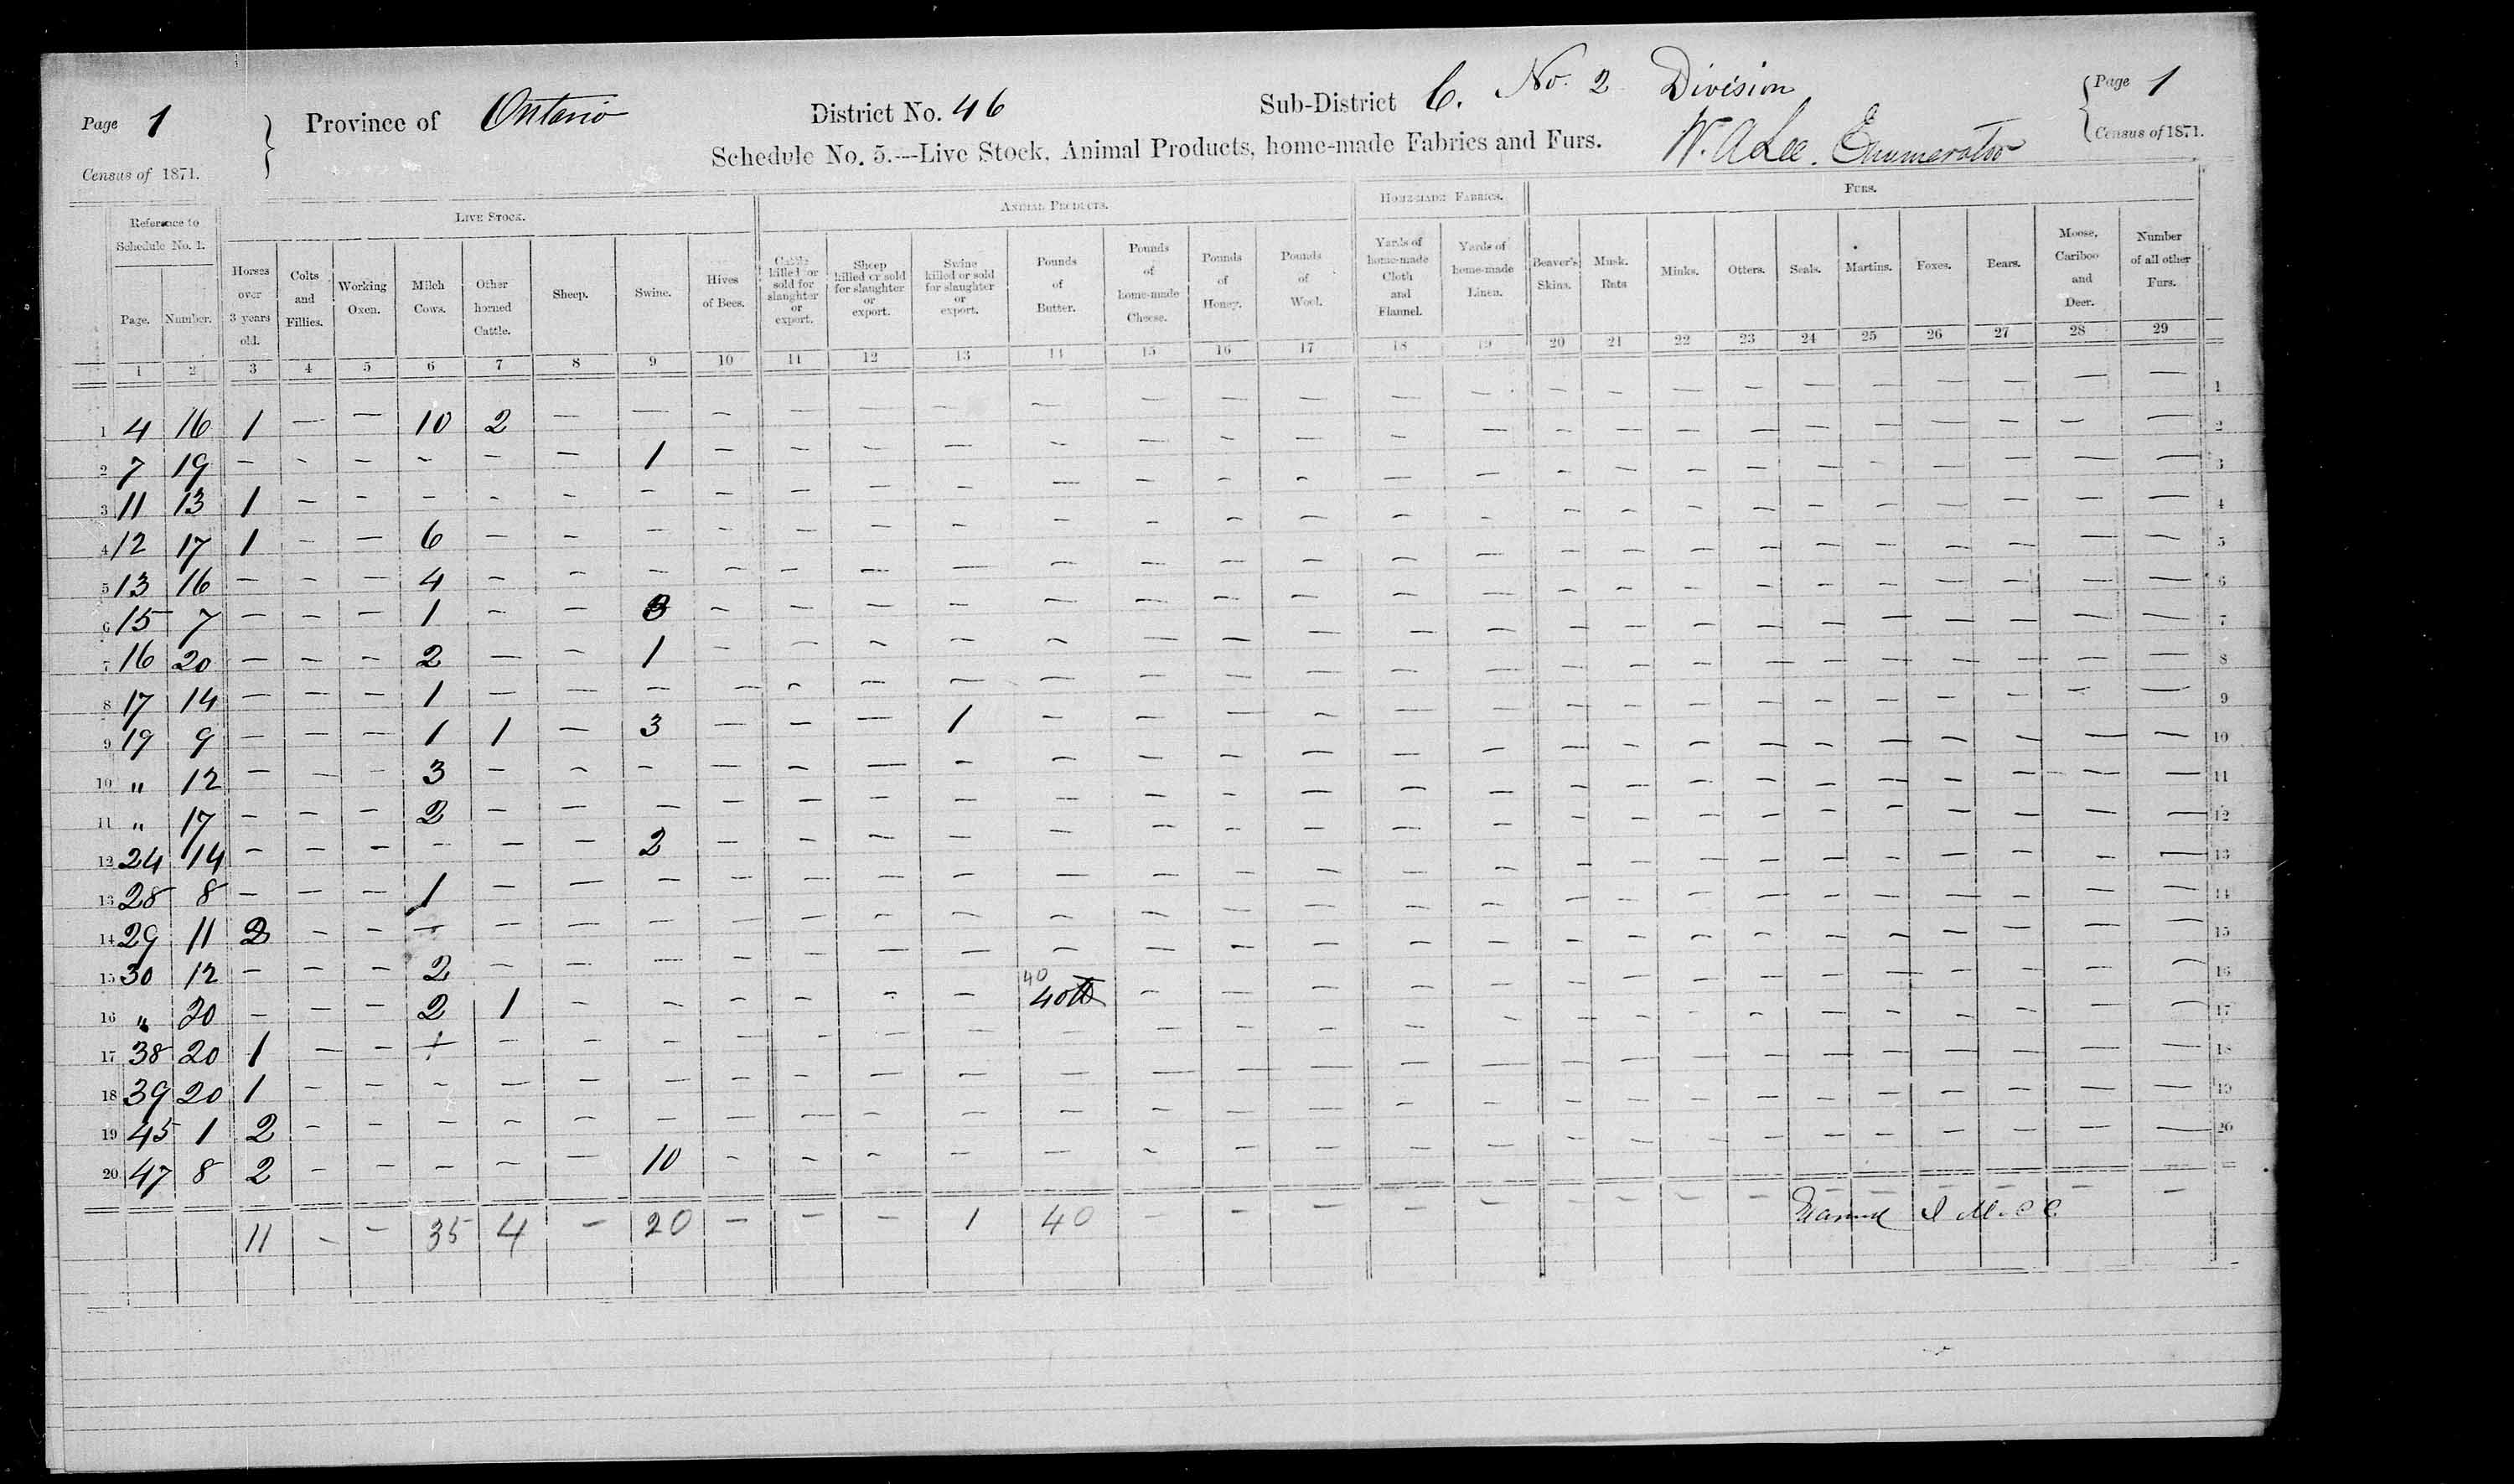 Page 1 Province of Ontario District No. 46 Sub-District C. No. 2 Division Page 1
Census of 1871. W. A. Lee. Enumerator Census of 1871.
Schedule No. 5.—Live Stock, Animal Products, home-made Fabrics and Furs.
Reference to Schedule No. 1. LIVE STOCK. ANIMAL PRODUCTS. HOME-MADE FABRICS. FURS.
Page. Number. Horses over 3 years old. Colts and Fillies. Working Oxen. Milch Cows. Other horned Cattle. Sheep. Swine. Hives of Bees. Cattle killed or sold for slaughter or export. Sheep killed or sold for slaughter or export. Swine killed or sold for slaughter or export. Pounds of Butter. Pounds of home-made Cheese. Pounds of Honey. Pounds of Wool. Yards of home-made Cloth and Flannel. Yards of home-made Linen. Beaver's Skins. Musk. Rats Minks. Otters. Seals. Martins. Foxes. Bears. Moose, Cariboo and Deer. Number of all other Furs.
1 2 3 4 5 6 7 8 9 10 11 12 13 14 15 16 17 18 19 20 21 22 23 24 25 26 27 28 29
1 4 16 1 — — 10 2 — — — — — — — — — — — — — — — — — — — — — — 1
2 7 19 — — — — — — 1 — — — — — — — — — — — — — — — — — — — — 2
3 11 13 1 — — — — — — — — — — — — — — — — — — — — — — — — — — 3
4 12 17 1 — — 6 — — — — — — — — — — — — — — — — — — — — — — — 4
5 13 16 — — — 4 — — — — — — — — — — — — — — — — — — — — — — — 5
6 15 7 — — — 1 — — 3 — — — — — — — — — — — — — — — — — — — — 6
7 16 20 — — — 2 — — 1 — — — — — — — — — — — — — — — — — — — — 7
8 17 14 — — — 1 — — — — — — — — — — — — — — — — — — — — — — — 8
9 19 9 — — — 1 1 — 3 — — — 1 — — — — — — — — — — — — — — — — 9
10 " 12 — — — 3 — — — — — — — — — — — — — — — — — — — — — — — 10
11 " 17 — — — 2 — — — — — — — — — — — — — — — — — — — — — — — 11
12 24 14 — — — — — — 2 — — — — — — — — — — — — — — — — — — — — 12
13 28 8 — — — 1 — — — — — — — — — — — — — — — — — — — — — — — 13
14 29 11 2 — — — — — — — — — — — — — — — — — — — — — — — — — — 14
15 30 12 — — — 2 — — — — — — — — — — — — — — — — — — — — — — — 15
16 " 20 — — — 2 1 — — — — — — 40 40 lb — — — — — — — — — — — — — — — 16
17 38 20 1 — — — — — — — — — — — — — — — — — — — — — — — — — — 17
18 39 20 1 — — — — — — — — — — — — — — — — — — — — — — — — — — 18
19 45 1 2 — — — — — — — — — — — — — — — — — — — — — — — — — — 19
20 47 8 2 — — — — — 10 — — — — — — — — — — — — — — — — — — — — 20
11 — — 35 4 — 20 — — — 1 40 — — — — — — — — — — — — — — —